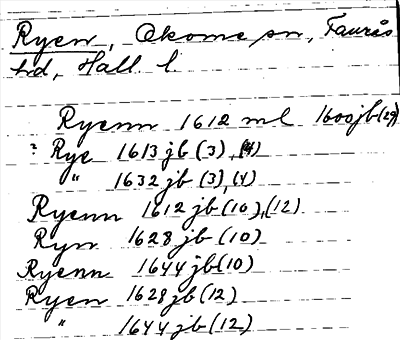 Ryen, Okome sn, Faurås
hd, Hall. l.
Ryenn 1612 ml 1600jb(29)
? Rye 1613 jb (3), (4)
" 1632 jb (3), (4)
Ryenn 1612 jb (10), (12)
Ryn 1628 jb (10)
Ryenn 1644 jb (10)
Ryen 1628 jb (12)
" 1644 jb (12)